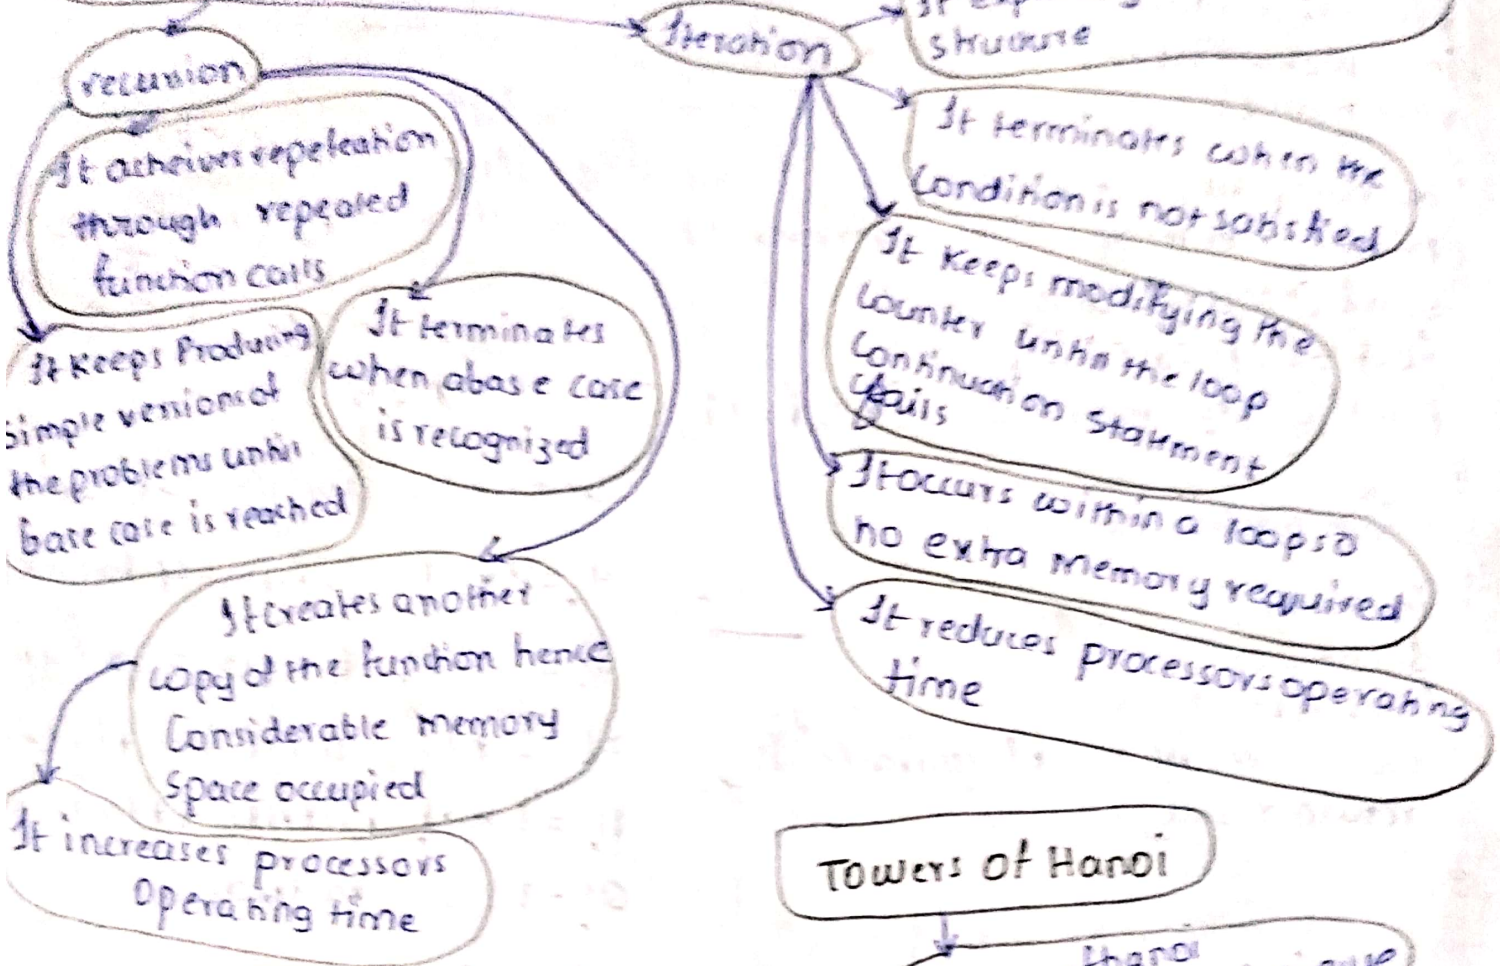 recursion
It acheives repeteation
through repeated
function calls
It Keeps Producing
simple versions of
the problems until
base case is reached
It terminates
when abase case
is recognized
It creates another
copy of the function hence
Considerable memory
Space occupied
It increases processors
Operating time
Iteration
structure
It terminates when the
Condition is not satisfied
It Keeps modifying the
counter until the loop
Continuation Statement
fails
It occurs within a loop so
no extra memory required
It reduces processors operating
time
Towers of Hanoi
Hanoi